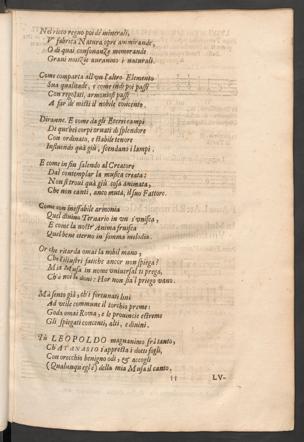 Nel ricco regno poi de' minerali,
V' fabrica Natura opre ammirande,
O di quai consonanze memorande
Gran notizie auranno i naturali.
Come comparta all'vn l'altro Elemento
Sua qualitade, e come indi poi passi
Con regolati, armoniosi passi
A far de' misti il nobile concento.
Diranne. E come da gli Eterei campi
De que' bei corpi ornati di splendore
Con ordinato, e stabile tenore
Influendo quà giù, scendano i lampi.
E come in sin salendo al Creatore
Dal contemplar la musica creata:
Non si troui quà giù cosa animata,
Che non canti, anco muta, il suo Fattore.
Come con ineffabile armonia
Quel diuino Ternario in vn s'vnisca,
E come la nostr' Anima fruisca
Quel bene eterno in somma melodia.
Or che ritarda omai la nobil mano,
Che l'illustri fatiche ancor non spiega?
Mia Musa in nome vniuersal ti prega,
Ch'à noi le doni: Hor non sia'l prego vano.
Mà sento già, ch'i fortunati lini
Ad vtile commune il torchio preme:
Goda omai Roma, e le prouincie estreme
Gli spiegati concenti, alti, e diuini.
Tù LEOPOLDO magnanimo frà tanto,
Ch'ATANASIO t'appresta i dotti fogli,
Con orecchio benigno odi, & accogli
(Qualunqu'egl'è) della mia Musa il canto.
LV-